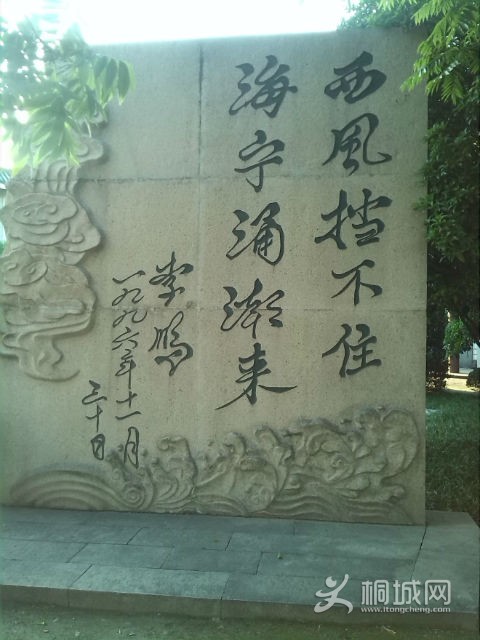 西風挡不住
海宁涌潮来
李鹏
一九九六年十一月
三十日
桐城网
www.itongcheng.com